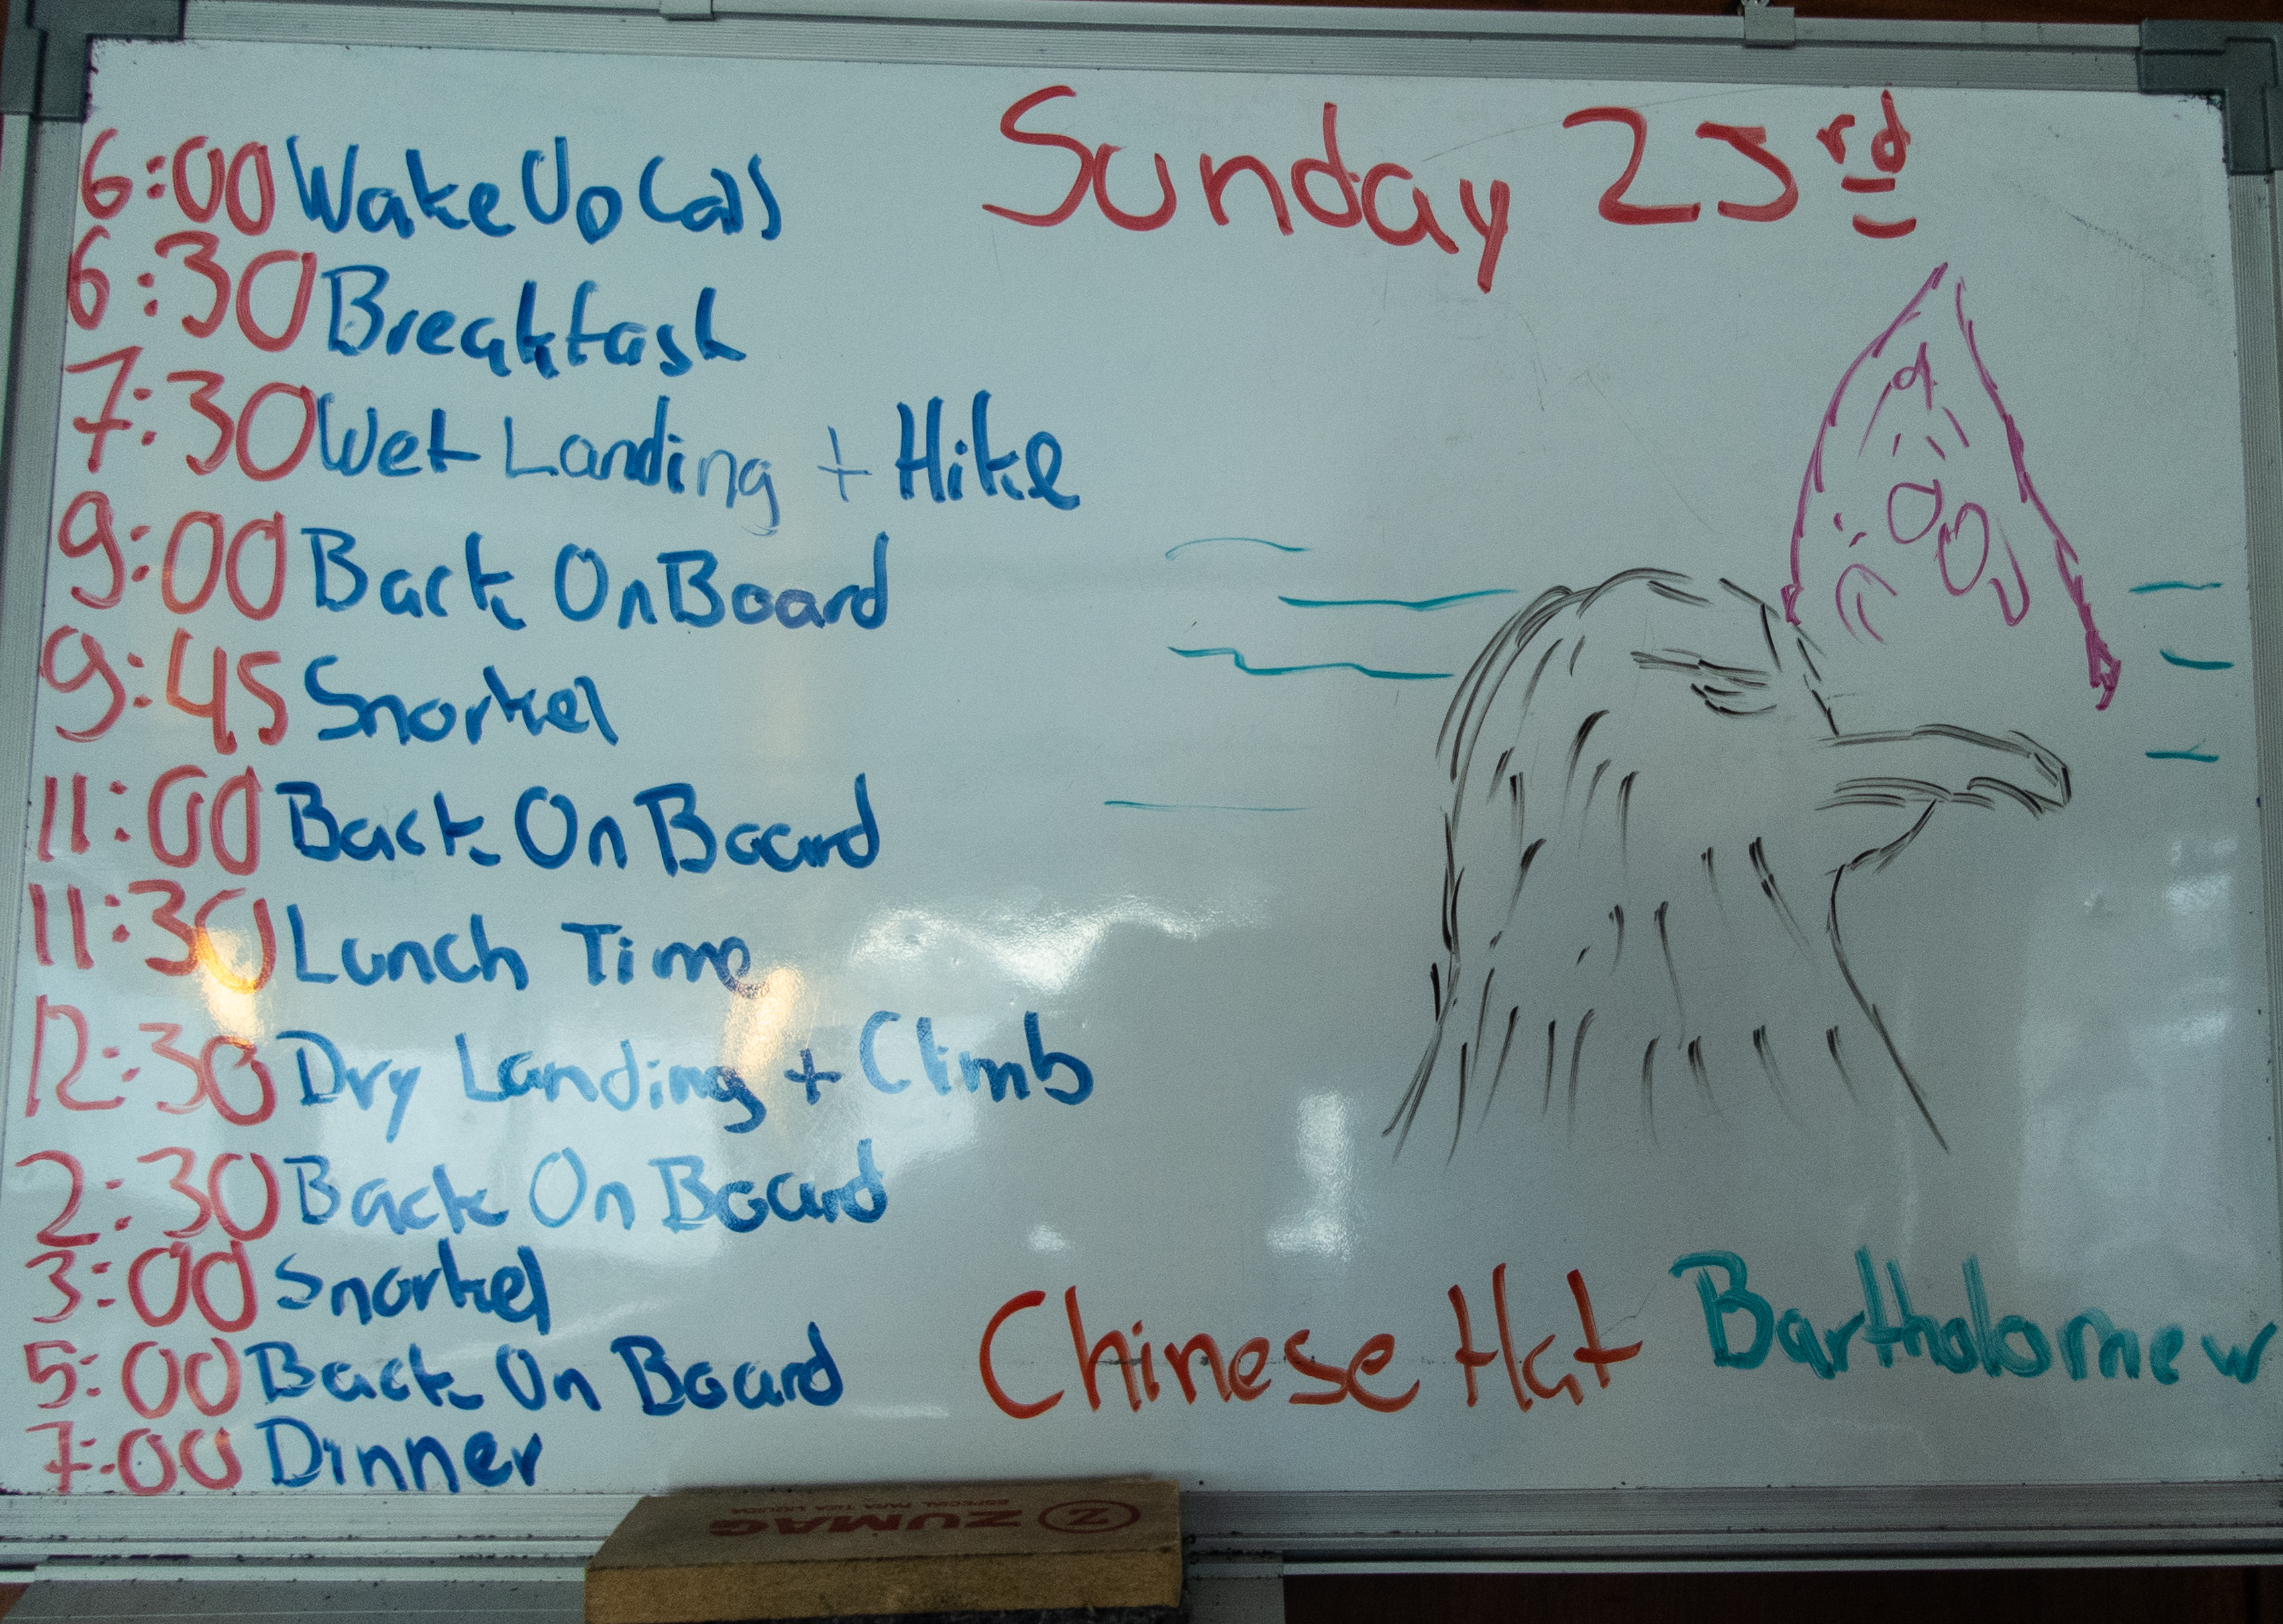 Sunday 23rd
6:00 Wake Up Call
6:30 Breakfast
7:30 Wet Landing + Hike
9:00 Back On Board
9:45 Snorkel
11:00 Back On Board
11:30 Lunch Time
12:30 Dry Landing + Climb
2:30 Back On Board
3:00 Snorkel
5:00 Back On Board
7:00 Dinner
Chinese Hat Bartholomew
ZUMAG
ESPECIAL PARA TIZA LIQUIDA